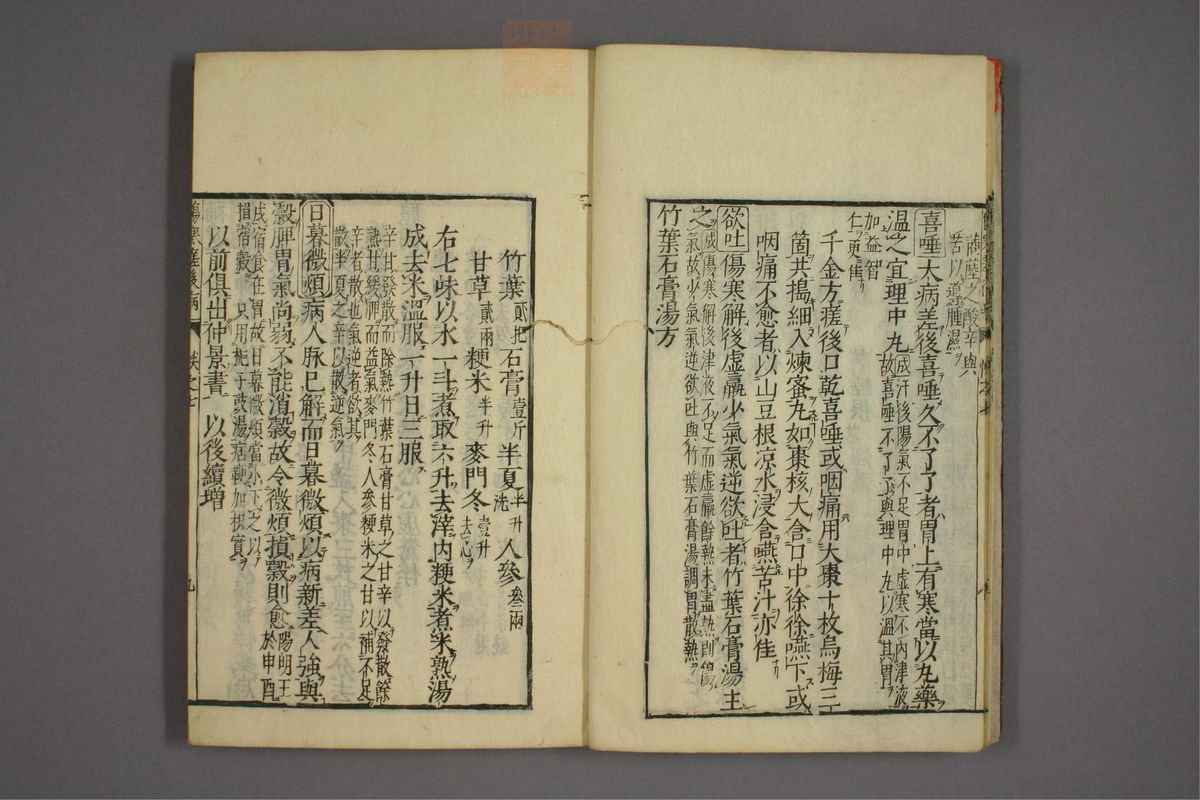 商陸之酸辛與
苦以道腫濕
喜唾大病差後喜唾久不了了者胃上有寒當以丸藥
温之宜理中丸成汗後陽氣不足胃中虛寒不内津液
故喜唾不了了與理中丸以温其胃
加益智
仁更佳
千金方瘥後口乾喜唾或咽痛用大棗十枚烏梅三十
箇共搗細入煉蜜丸如棗核大含口中徐徐嚥下或
咽痛不愈者以山豆根凉水浸含嚥苦汁亦佳
欲吐傷寒解後虛羸少氣氣逆欲吐者竹葉石膏湯主
之成傷寒解後津液不足而虛羸餘熱未盡熱則傷
氣故少氣氣逆欲吐與竹葉石膏湯調胃散熱
竹葉石膏湯方
竹葉貳把石膏壹斤半夏半升洗人參叁兩
甘草貳兩粳米半升麥門冬壹升去心
右七味以水一斗煮取六升去滓内粳米煮米熟湯
成去米温服一升日三服
辛甘發散而除熱竹葉石膏甘草之甘辛以發散餘
熱甘緩脾而益氣麥門冬人參粳米之甘以補不足
辛者散也氣逆者欲其
散半夏之辛以散逆氣
日暮微煩病人脉已解而日暮微煩以病新差人強與
穀脾胃氣尚弱不能消穀故令微煩損穀則愈陽明王
於申酉
戌宿食在胃故日暮微煩當小下之以
損宿穀只用梔子豉湯痞鞕加枳實
以前俱出仲景書以後續增
傷寒瘥後病 卷之七 九